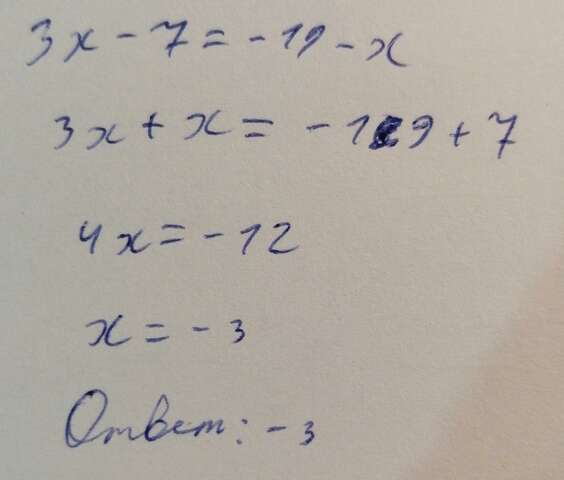 3x - 7 = -19 - x
3x + x = -19 + 7
4x = -12
x = -3
Ответ: -3